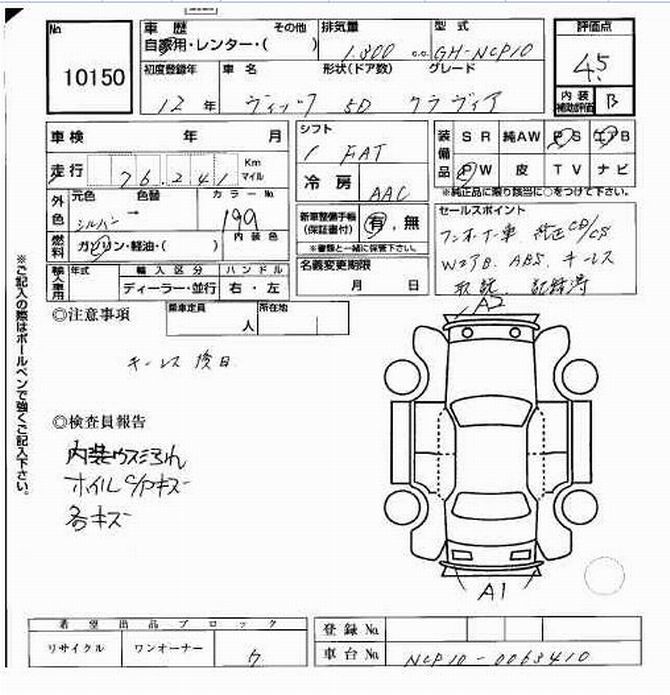 No.
10150
車歴
自家用・レンター・( )
その他
排気量
1.300 c.c.
型式
GH-NCP10
評価点
4.5
内装
補助評価
B
初度登録年
12年
車名
ヴィッツ
形状(ドア数)
5D
グレード
クラヴィア
車検 年 月
走行 76.241 Km マイル
外色
元色
シルバー
色替
カラーNo.
199
内装色
燃料
ガソリン・軽油・( )
輸入車用
年式
輸入区分
ディーラー・並行
ハンドル
右・左
シフト
FAT
冷房
AAC
新車整備手帳
(保証書付)
有・無
※書類と一緒に保管下さい。
名義変更期限
月 日
装備品
SR 純AW PS エアB
PW 皮 TV ナビ
※純正品に限り該当に○をつけて下さい。
セールスポイント
ワンオーナー車 純正CD/CS
WエアB. ABS. キーレス
取説 記録簿
乗車定員
人
所在地
◎注意事項
キーレス後日
◎検査員報告
内装ウスミヨゴレ
ホイルC/Pキズ
各キズ
A2
A1
※ご記入の際はボールペンで強くご記入下さい。
希望出品ブロック
リサイクル
ワンオーナー
登録No.
車台No.
NCP10-0063410